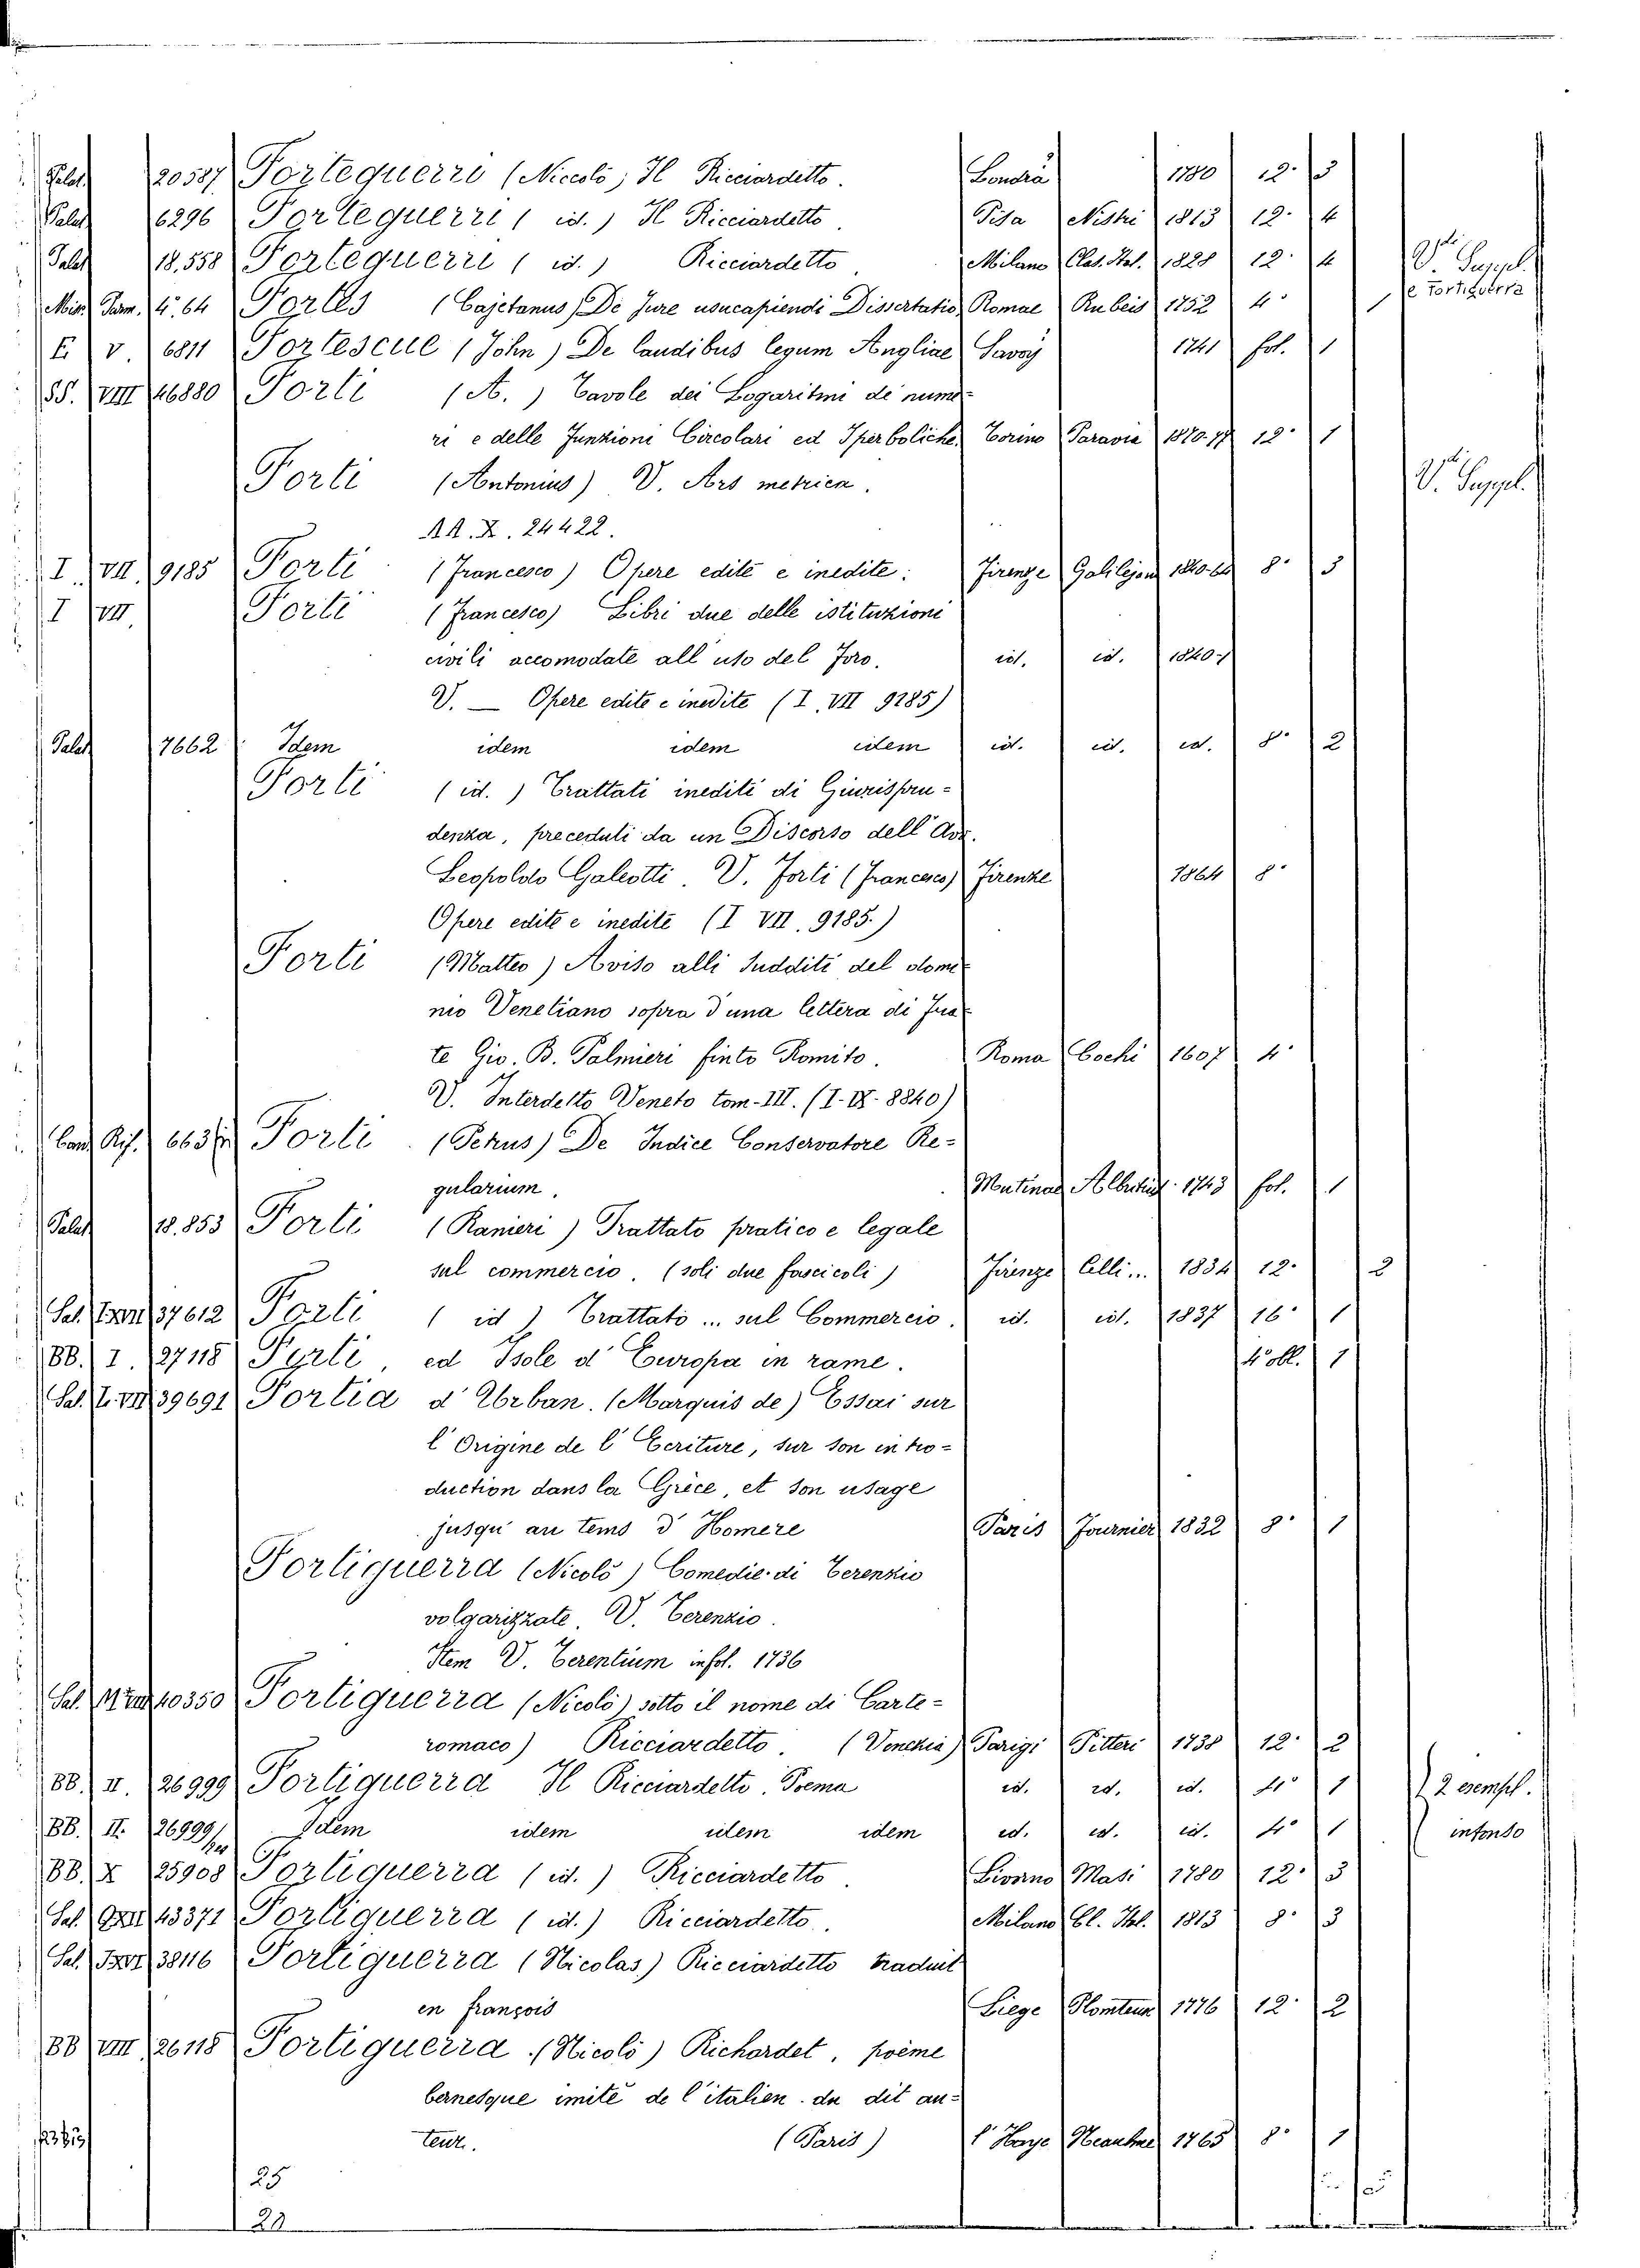 Palat. 20587 Fortequerri (Niccolò, Il Ricciardetto. Londra 1780 12.º 3
Palat. 6296 Fortequerri (id.) Il Ricciardetto. Pisa Nistri 1813 12.º 4
Palat. 18.558 Fortequerri (id.) Ricciardetto Milano Clas. Ital. 1828 12.º 4 V. Suppl.
e Fortiguerra
Misc. Farm. 4.º 64 Fortes (Cajetanus) De Jure usucapiendi Dissertatio Romae Rubeis 1752 4.º
E. V. 6811 Fortescue (John) De laudibus legum Angliae Savoy 1741 fol. 1
SS. VIII 46880 Forti (A.) Tavole dei Logaritmi de nume-
ri e delle Funzioni Circolari ed Iperboliche. Torino Paravia 1870-77 12.º 1
Forti (Antonius) V. Ars metrica. V. Suppl.
AA. X. 24422.
I. VII. 9185 Forti (Francesco) Opere edite e inedite. Firenze Galilejana 8.º 3
I VII. Forti (Francesco) Libri due delle istituzioni
civili accomodate all uso del Foro. id. id. 1840-
V. — Opere edite e inedite (I. VII 9185)
Palat. 7662 Idem idem idem idem id. id. id. 8.º 2
Forti (id.) Trattati inediti di Giurispru-
denza, preceduti da un Discorso dell' Avv.
Leopoldo Galeotti. V. Forti (Francesco) Firenze 1864 8.º
Opere edite e inedite (I VII. 9185.)
Forti (Matteo) Aviso alli Sudditi del domi-
nio Venetiano sopra d'una lettera di Fra-
te Gio. B. Palmieri finto Romito. Roma Cochi 1607 4.º
V. Interdetto Veneto tom. III. (I. IX. 8840)
Band. Rif. Forti (Petrus) De Indice Conservatore Re-
gularium. Mutinae 1743 fol. 1
Palat. 18.853 Forti (Ranieri) Trattato pratico e legale
sul commercio. (soli due fascicoli) Firenze Celli... 1834 12.º 2
37612 Forti (id) Trattato ... sul Commercio. id. id. 1837 16.º 1
BB. I. 27118 Forti, ed Isole d' Europa in rame. 4.º obl. 1
39691 Fortia d' Urban. (Marquis de) Essai sur
l' Origine de l' Ecriture, sur son intro-
duction dans la Grèce, et son usage
jusqu' au tems d' Homere Paris Fournier 1832 8.º 1
Fortiguerra (Nicolò) Comedie di Terenzio
volgarizzate. V. Terenzio.
Item V. Terentium in fol. 1736
40350 Fortiguerra (Nicolò) sotto il nome di Carte-
romaco) Ricciardetto. (Venezia) Parigi Pitteri 1738 12.º 2
BB. II. 26999 Fortiguerra Il Ricciardetto. Poema id. id. id. 4.º 1 2 esempl.
BB. II. 26999 Idem idem idem idem id. id. id. 4.º 1 intonso
BB. X 25908 Fortiguerra (id.) Ricciardetto. Livorno Masi 1780 12.º 3
43371 Fortiguerra (id.) Ricciardetto. Milano Cl. Ital. 1813 8.º 3
38116 Fortiguerra (Nicolas) Ricciardetto traduit
en françois Liege Plomteux 1776 12.º 2
BB VIII 26118 Fortiguerra (Nicolò) Richardet, poème
bernesque imité de l'italien. du dit au-
teur. (Paris) l' Haye Neaulme 1765 8.º 1
25